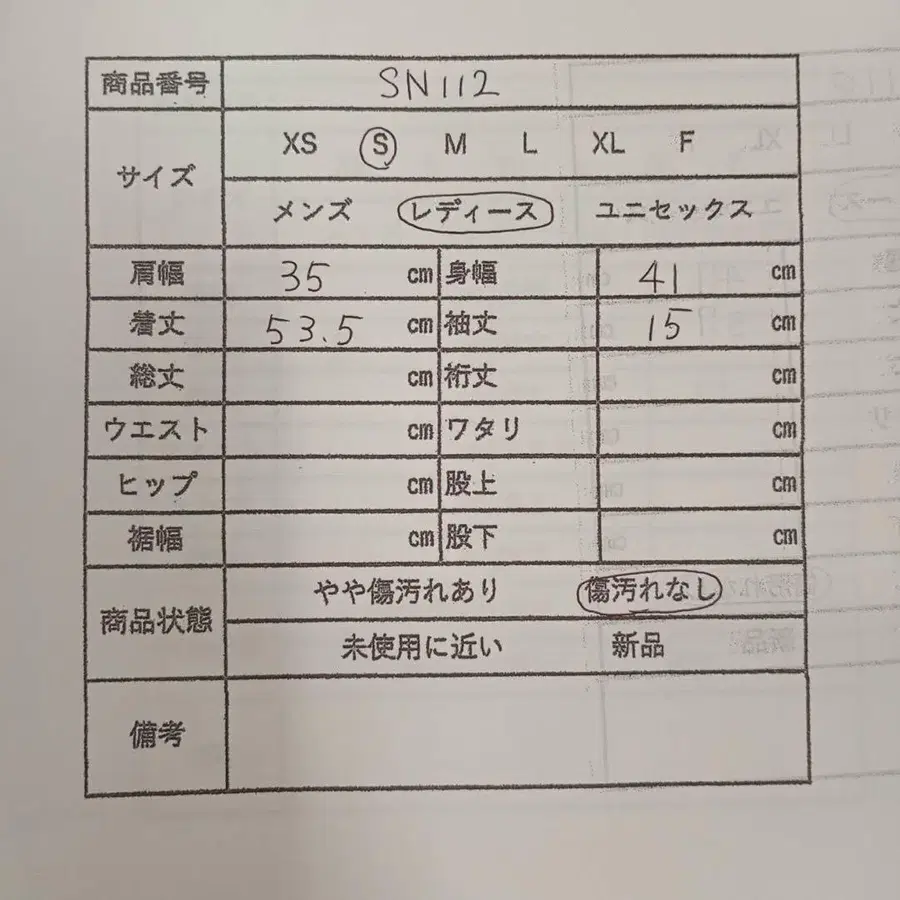 商品番号 SN112
サイズ
XS S M L XL F
メンズ レディース ユニセックス
肩幅 35 cm 身幅 41 cm
着丈 53.5 cm 袖丈 15 cm
総丈 cm 裄丈 cm
ウエスト cm ワタリ cm
ヒップ cm 股上 cm
裾幅 cm 股下 cm
商品状態
やや傷汚れあり 傷汚れなし
未使用に近い 新品
備考